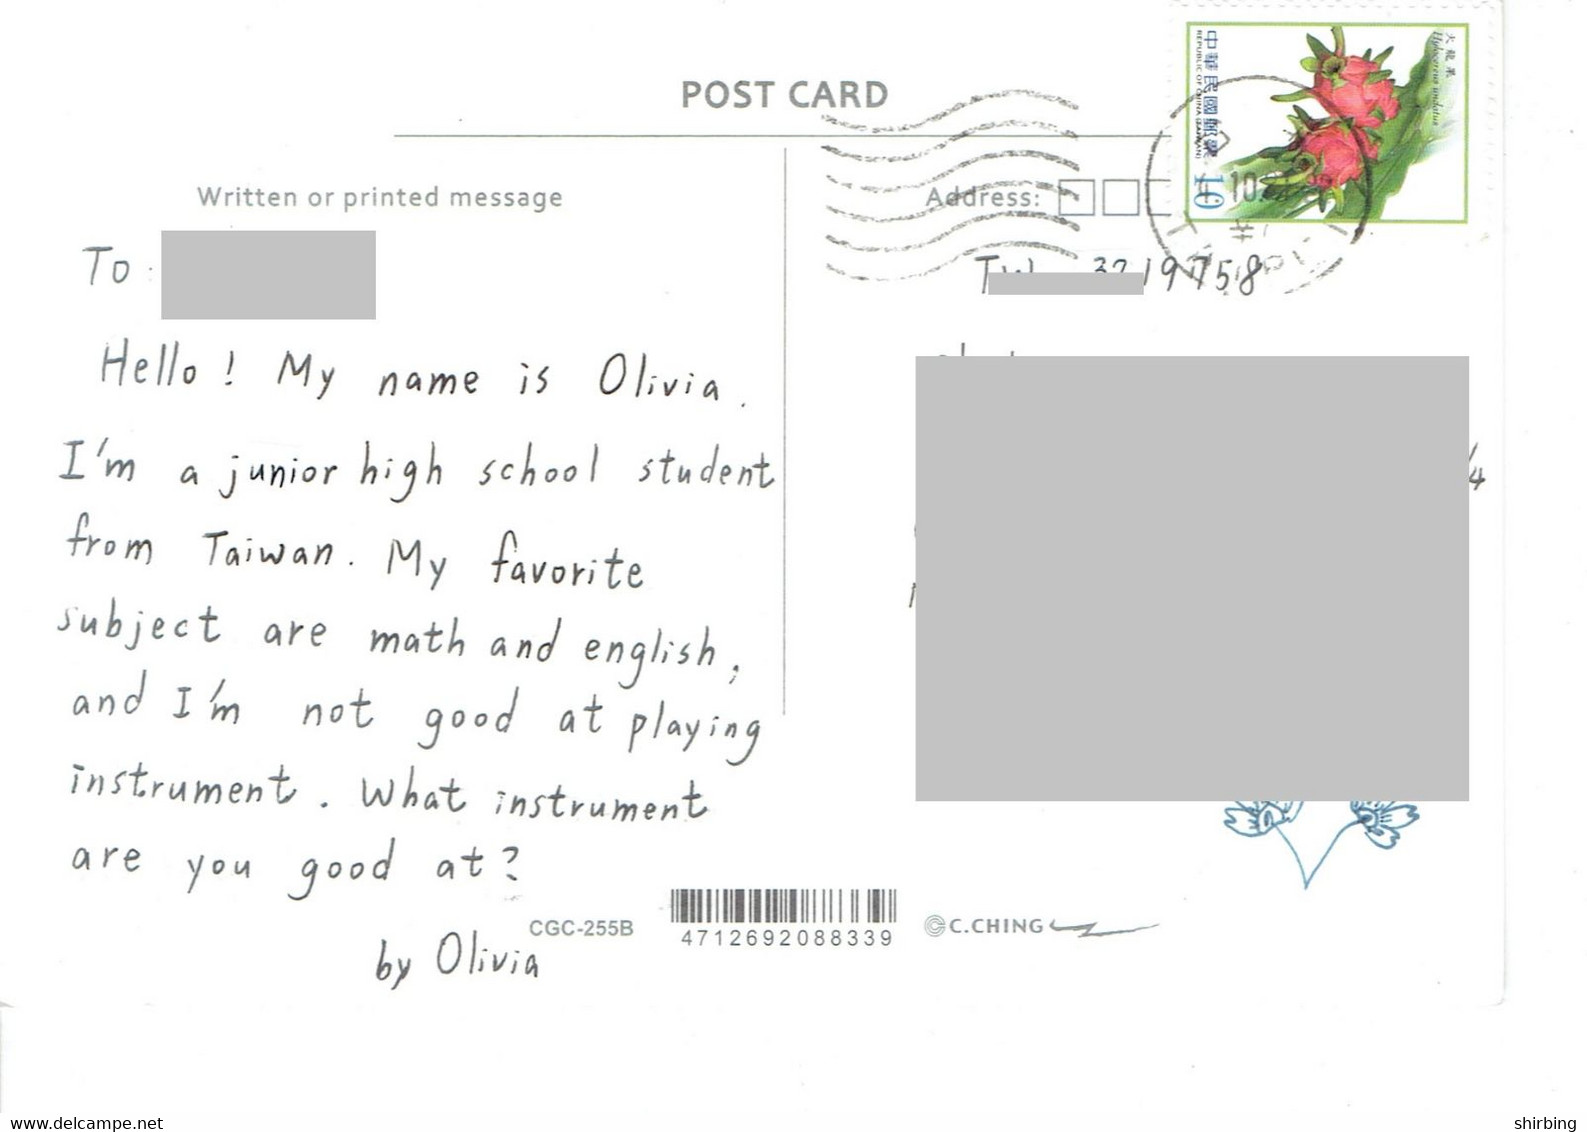 POST CARD
中華民國郵票
REPUBLIC OF CHINA (TAIWAN)
火龍果
Hylocereus undatus
10
Written or printed message
Address:
To :
19758
Hello! My name is Olivia.
I'm a junior high school student
from Taiwan. My favorite
subject are math and english,
and I'm not good at playing
instrument. What instrument
are you good at?
by Olivia
CGC-255B
4712692088339
C.CHING
www.delcampe.net
shirbing